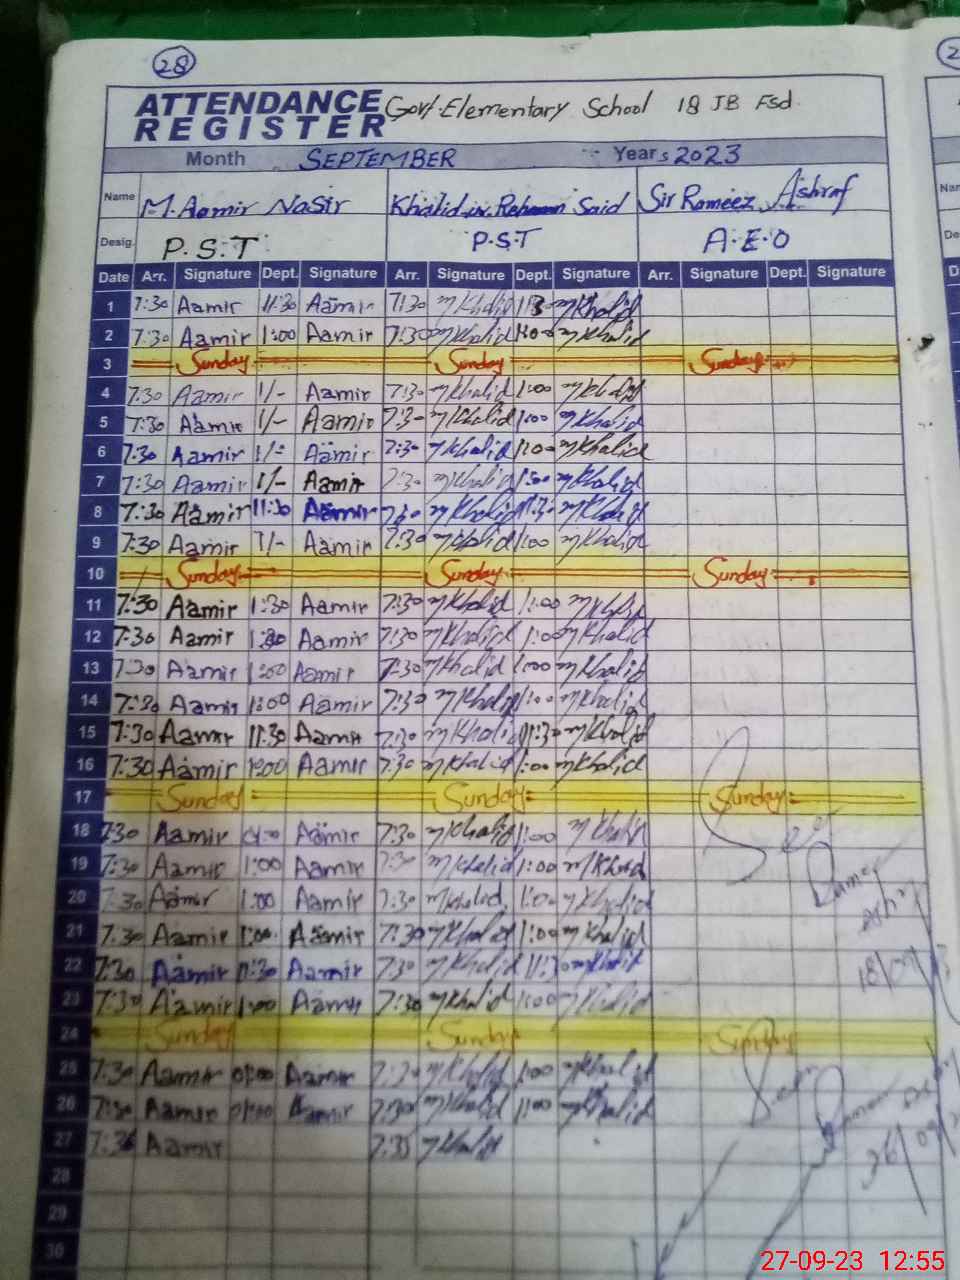 28
ATTENDANCE REGISTER Govt. Elementary School 18 JB Fsd.
Month SEPTEMBER Years 2023
Name M. Aamir Nasir Khalid Said Sir Rameez Ashraf
Desig. P.S.T P.S.T A.E.O
Date Arr. Signature Dept. Signature Arr. Signature Dept. Signature Arr. Signature Dept. Signature
1 7:30 Aamir 11:30 Aamir 7:30 m Khalid m Khalid
2 7:30 Aamir 1:00 Aamir 7:30 m Khalid 1:00 m Khalid
3 Sunday Sunday Sunday
4 7:30 Aamir 1/- Aamir 7:30 m Khalid 1:00 m Khalid
5 7:30 Aamir 1/- Aamir 7:3- m Khalid 1:00 m Khalid
6 7:30 Aamir 1/- Aamir 7:30 m Khalid 1:00 m Khalid
7 7:30 Aamir 1/- Aamir 7:30 m Khalid m Khalid
8 7:30 Aamir 11:30 Aamir 7:30 m Khalid 11:30 m Khalid
9 7:30 Aamir 1/- Aamir 7:30 m Khalid 1:00 m Khalid
10 Sunday Sunday Sunday
11 7:30 Aamir 1:30 Aamir 7:30 m Khalid 1:00 m Khalid
12 7:30 Aamir Aamir 7:30 m Khalid 1:00 m Khalid
13 7:30 Aamir 1:00 Aamir 7:30 m Khalid 1:00 m Khalid
14 7:30 Aamir 1:00 Aamir 7:30 m Khalid 1:00 m Khalid
15 7:30 Aamir 11:30 Aamir 7:30 m Khalid 11:30 m Khalid
16 7:30 Aamir 1:00 Aamir 7:30 m Khalid 1:00 m Khalid
17 Sunday Sunday Sunday
18 7:30 Aamir Aamir 7:30 m Khalid 1:00 m Khalid
19 7:30 Aamir 1:00 Aamir 7:30 m Khalid 1:00 m Khalid
20 7:30 Aamir 1:00 Aamir 7:30 m Khalid 1:00 m Khalid
21 7:30 Aamir 1:00 Aamir 7:30 m Khalid 1:00 m Khalid
22 7:30 Aamir 11:30 Aamir 7:30 m Khalid 11:30 m Khalid
23 7:30 Aamir 1:00 Aamir 7:30 m Khalid 1:00 m Khalid
24 Sunday Sunday Sunday
25 7:30 Aamir 01:00 Aamir 7:30 m Khalid 1:00 m Khalid
26 7:30 Aamir 01:00 Aamir 7:30 m Khalid 1:00 m Khalid
27 7:30 Aamir m Khalid
28
29
30
27-09-23 12:55